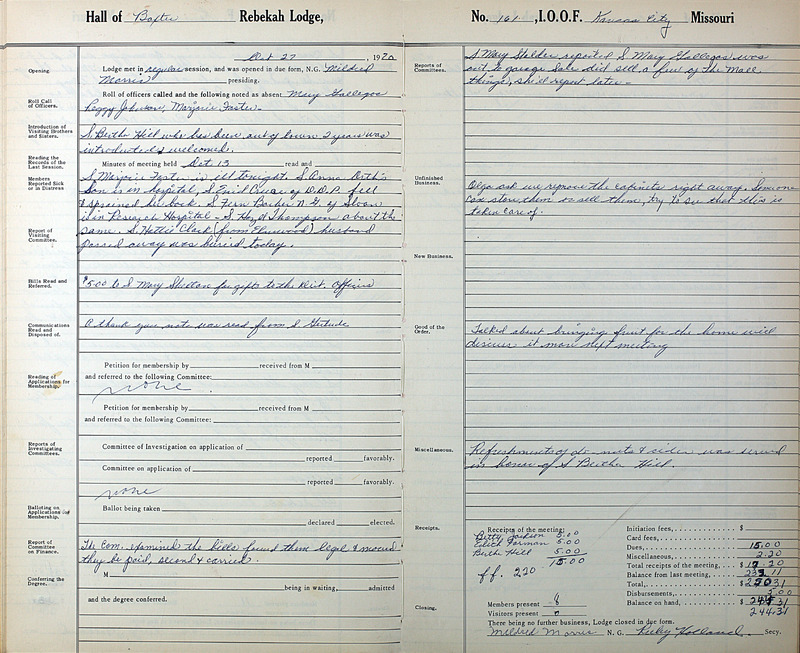 Hall of Baxter Rebekah Lodge,
No. 161, I.O.O.F. Kansas City Missouri
Oct 27, 1970
Opening.
Lodge met in regular session, and was opened in due form, N.G. Mildred
Morris presiding.
Roll Call of Officers.
Roll of officers called and the following noted as absent Mary Gallegos
Peggy Johnson, Marjorie Foster.
Introduction of Visiting Brothers and Sisters.
S. Bertha Hill who has been out of town 2 years was
introduced & welcomed.
Reading the Records of the Last Session.
Minutes of meeting held Oct 13 read and
Members Reported Sick or in Distress
S. Marjorie Foster is ill tonight. S. Anna Orth's
Son is in hospital, S. Enid of D.D.P. fell
& sprained her back. S. Fern Barber N.G. of Sloan
is in Research Hospital - S. Hazel Thompson about the
same. S. Hattie Clark (from Elmwood) husband
passed away was buried today.
Report of Visiting Committee.
Bills Read and Referred.
$5.00 to S Mary Skelton for gifts to the Dist. Officers
Communications Read and Disposed of.
A thank you note was read from S Gertrude
Reading of Applications for Membership.
Petition for membership by received from M
and referred to the following Committee:
none
Petition for membership by received from M
and referred to the following Committee:
Reports of Investigating Committees.
Committee of Investigation on application of
reported favorably.
Committee on application of
reported favorably.
none
Balloting on Applications for Membership.
Ballot being taken
declared elected.
Report of Committee on Finance.
The Com. examined the bills found them legal & moved
they be paid, second & carried.
Conferring the Degree.
M
being in waiting, admitted
and the degree conferred.
Reports of Committees.
S Mary Skelton reported S Mary Gallegos was
out to garage Sale did sell a few of the
things, she'll report later.
Unfinished Business.
Olga ask we remove the cabinets right away. Someone
can store them or sell them, try to see that this is
taken care of.
New Business.
Good of the Order.
Talked about bringing fruit for the home will
discuss it more next meeting
Miscellaneous.
Refreshments of do-nuts & cider was served
in honor of S Bertha Hill.
Receipts.
Receipts of the meeting:
Betty Jackson 5.00
Edith Forman 5.00
Bertha Hill 5.00
15.00
ff. 220
Initiation fees, $
Card fees,
Dues, 15.00
Miscellaneous, 2.20
Total receipts of the meeting, $ 17.20
Balance from last meeting,
Total, $
Disbursements, 5.00
Balance on hand, $
244.31
Closing.
Members present 8
Visitors present 0
There being no further business, Lodge closed in due form.
Mildred Morris N. G. Ruby Holland Secy.